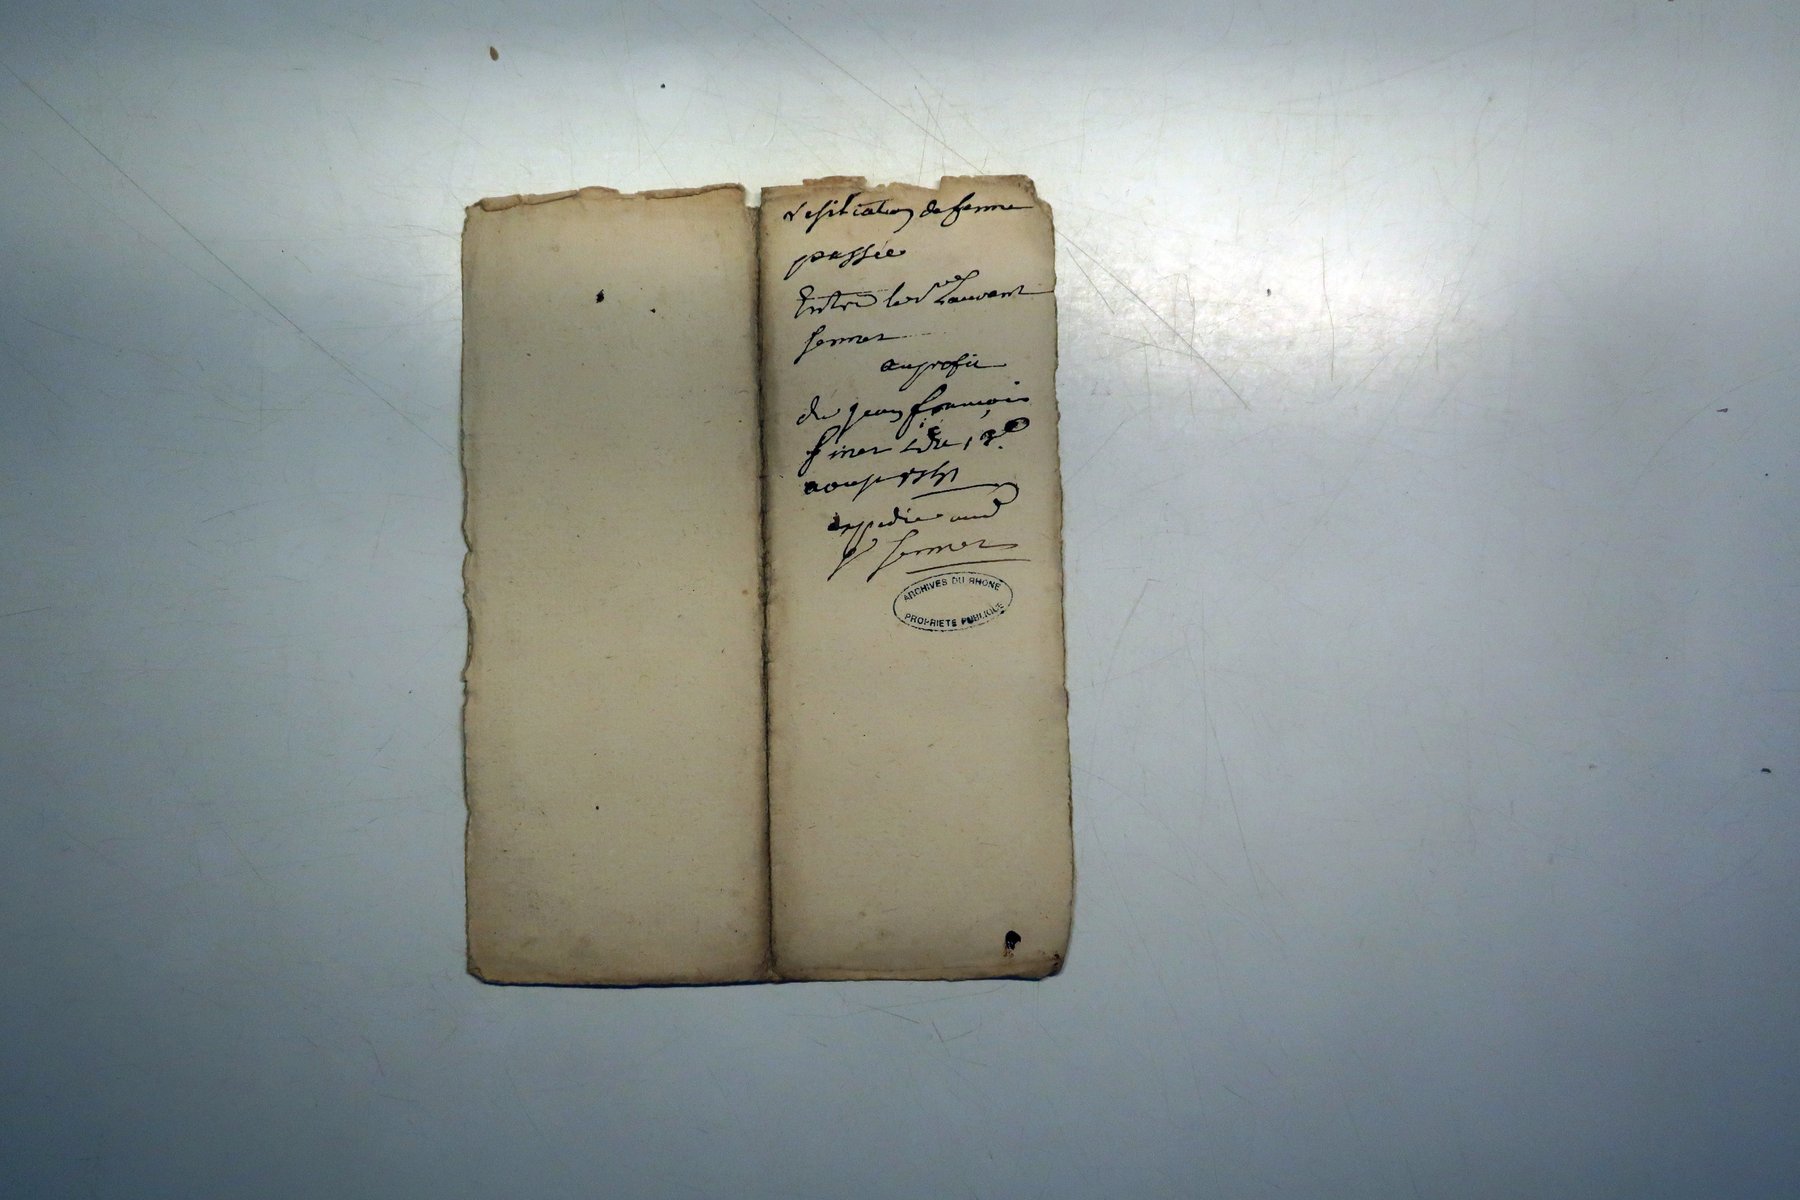 resiliation de ferme
passée
Entre le sr Laurent
fermer
au profit
de jean françois
finer
aoust
expediee aud
sr fermer
ARCHIVES DU RHONE
PROPRIETE PUBLIQUE